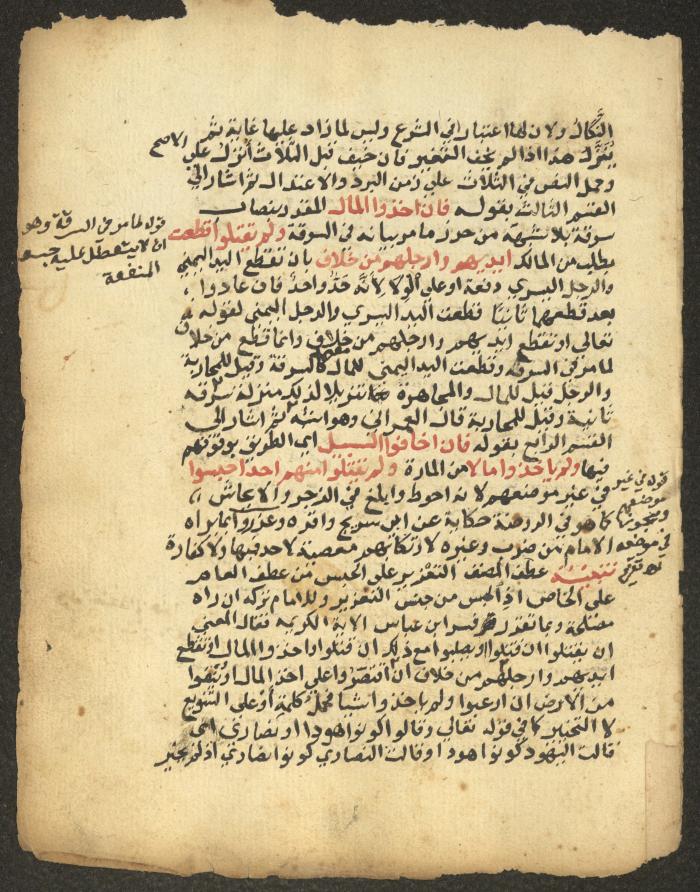 النكال ولان لها اعتبارا في الشرع وليس لما زاد عليها غاية ثم
ينزل هذا اذا لم يخف التغير فان خيف قبل الثلاث انزل على الاصح
وحمل النص في الثلاث على زمن البرد والاعتدال ثم اشار الى
القسم الثالث بقوله فان اخذوا المال المقدر بنصاب
سرقة بلا شبهة من حرز مما مر بيانه في السرقة ولم يقتلوا قطعت
بطلب من المالك ايديهم وارجلهم من خلاف بان تقطع اليد اليمنى
والرجل اليسرى دفعة او على الولا لانه حد واحد فان عادوا
بعد قطعهما ثانيا قطعت اليد اليسرى والرجل اليمنى لقوله
تعالى او تقطع ايديهم وارجلهم من خلاف وانما قطع من خلاف
لما مر في السرقة وقطعت اليد اليمنى للمال كالسرقة وقيل للمحاربة
والرجل قيل للمال والمجاهرة تنزيلا لذلك منزلة سرقة
ثانية وقيل للمحاربة قال العمراني وهو اشبه ثم اشار الى
القسم الرابع بقوله فان اخافوا السبيل اي الطريق بوقوفهم
فيها ولم ياخذوا مالا من المارة ولم يقتلوا منهم احدا حبسوا
في غير موضعهم لانه احوط وابلغ في الزجر والايحاش
كما هو في الروضة حكاية عن ابن سريج واقره وعزروا بما يراه
الامام من ضرب وغيره لارتكابهم معصية لا حد فيها ولا كفارة
تنبيه عطف المصنف التعزير على الحبس من عطف العام
على الخاص اذ الحبس من جنس التعزير وللامام تركه ان راه
مصلحة وبما تقدر فسر ابن عباس الاية الكريمة فقال المعنى
ان يقتلوا ان قتلوا او يصلبوا مع ذلك ان قتلوا واخذوا المال او تقطع
ايديهم وارجلهم من خلاف ان اقتصروا على اخذ المال او ينفوا
من الارض ان ارعبوا ولم ياخذوا شيئا فحمل كلمة او على التنويع
لا التخيير كما في قوله تعالى وقالوا كونوا هودا او نصارى اي
قالت اليهود كونوا هودا وقالت النصارى كونوا نصارى اذ لم يخير
قوله لما مر في السرقة وهو
ان لا يتعطل عليه جنس
المنفعة
قوله في غير
موضعهم
في موضعه